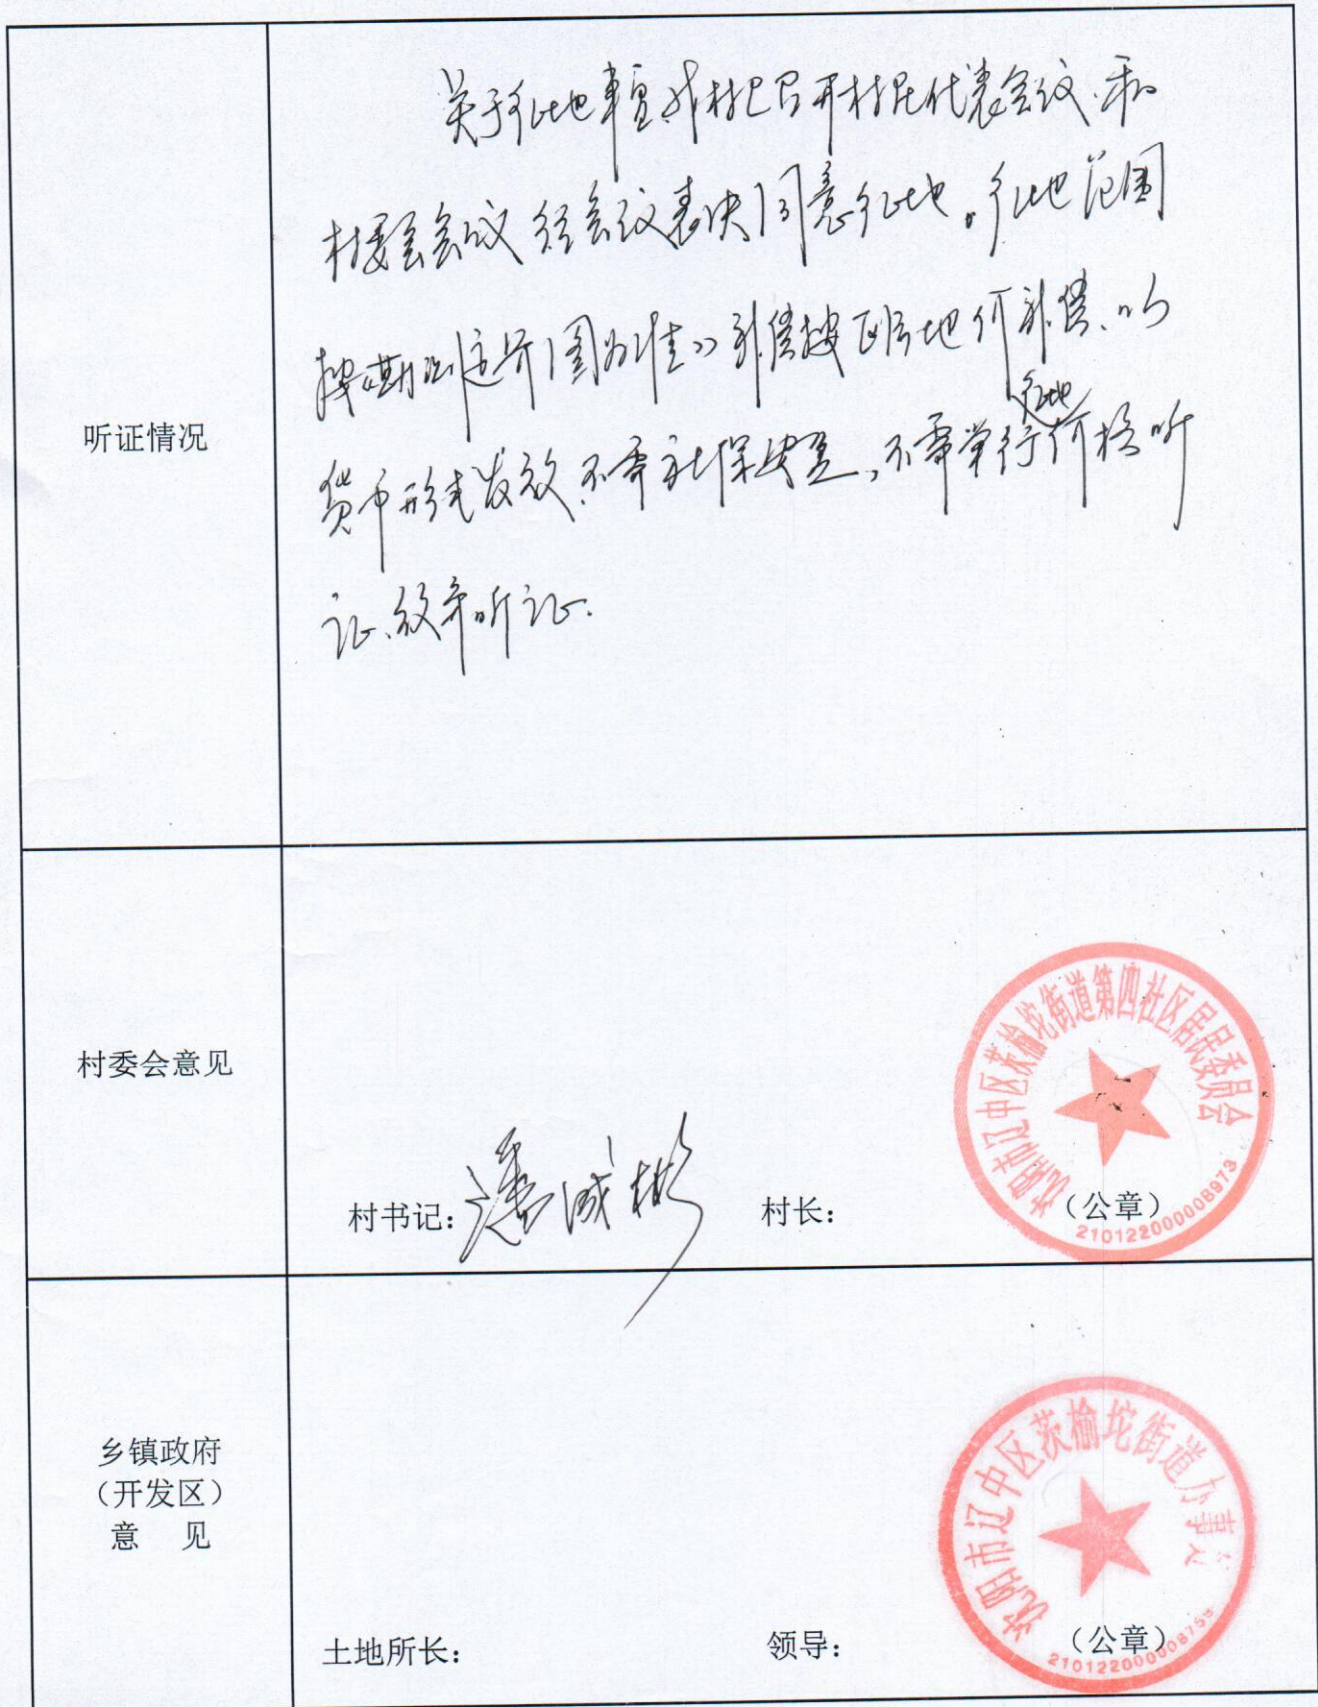 听证情况
关于征地事宜我村已召开村民代表会议.和
村委会会议 经会议表决同意征地。征地范围
按《勘测定界图为准》补偿按区片地价补偿、以
货币形式发放.不需社保安置,不需举行征地价格听
证.放弃听证.
村委会意见
村书记:潘成彬
村长:
(公章)
沈阳市辽中区茨榆坨街道第四社区居民委员会
2101220000008973
乡镇政府
(开发区)
意 见
土地所长:
领导:
(公章)
沈阳市辽中区茨榆坨街道办事